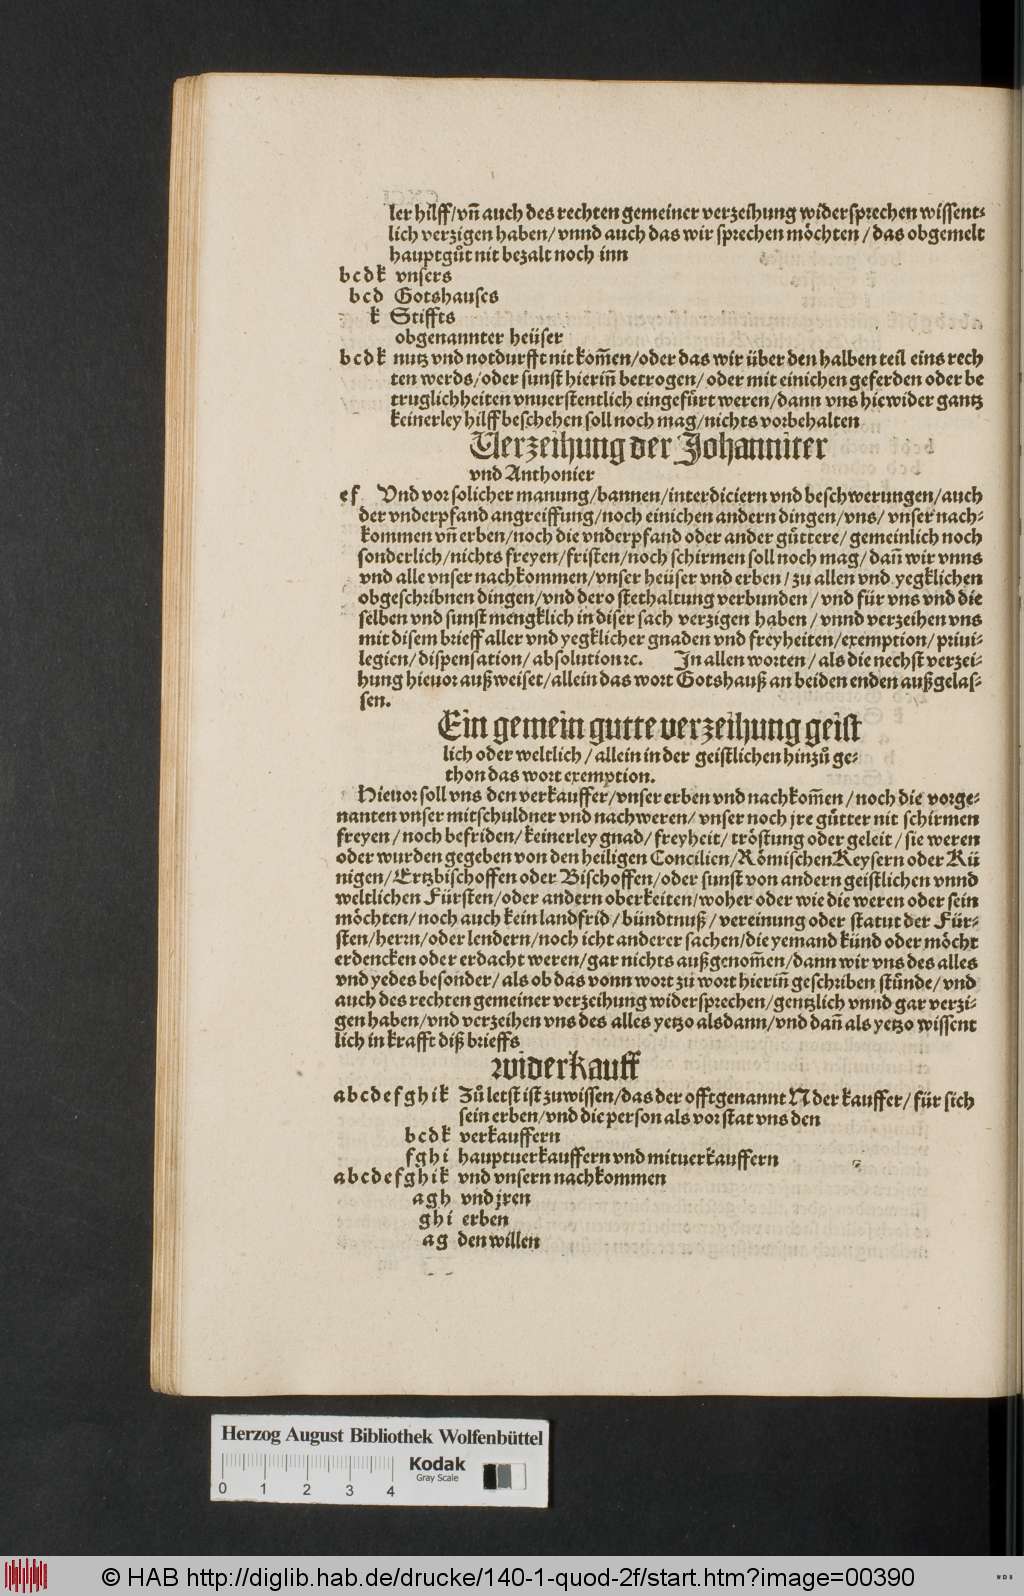 ler hilff/vñ auch des rechten gemeiner verzeihung widersprechen wissent-
lich verzigen haben/ vnnd auch das wir sprechen möchten / das obgemelt
hauptgůt nit bezalt noch inn
b c d k vnsers
b c d Gotshauses
k Stiffts
obgenannter heüser
b c d k nutz vnd notdurfft nit kom̄en/oder das wir über den halben teil eins rech
ten werds/oder sunst hierin̄ betrogen/ oder mit einichen geferden oder be
truglichheiten vnuerstentlich eingefürt weren/dann vns hiewider gantz
keinerley hilff beschehen soll noch mag/nichts vorbehalten
Verzeihung der Johanniter
vnd Anthonier
e f Vnd vor solicher manung/bannen/interdiciern vnd beschwerungen/auch
der vnderpfand angreiffung/noch einichen andern dingen/vns/ vnser nach-
kommen vñ erben/noch die vnderpfand oder ander gůttere/ gemeinlich noch
sonderlich/nichts freyen/fristen/noch schirmen soll noch mag/dañ wir vnns
vnd alle vnser nachkommen/vnser heüser vnd erben/ zu allen vnd yegklichen
obgeschribnen dingen/vnd dero stethaltung verbunden / vnd für vns vnd die
selben vnd sunst mengklich in diser sach verzigen haben / vnnd verzeihen vns
mit disem brieff aller vnd yegklicher gnaden vnd freyheiten/exemption/ priui-
legien/ dispensation/ absolution ⁊c. In allen worten / als die nechst verzei-
hung hieuor außweiset/allein das wort Gotshauß an beiden enden außgelas-
sen.
Ein gemein gutte verzeihung geist
lich oder weltlich / allein in der geistlichen hinzů ge-
thon das wort exemption.
Hieuor soll vns den verkauffer/vnser erben vnd nachkom̄en / noch die vorge-
nanten vnser mitschuldner vnd nachweren/ vnser noch jre gůtter nit schirmen
freyen / noch befriden/ keinerley gnad/ freyheit/ tröstung oder geleit / sie weren
oder wurden gegeben von den heiligen Concilien/Römischen Keysern oder Kü
nigen/ Ertzbischoffen oder Bischoffen/oder sunst von andern geistlichen vnnd
weltlichen Fürsten/oder andern oberkeiten/woher oder wie die weren oder sein
möchten/noch auch kein landfrid/ bündtnuß / vereinung oder statut der Für-
sten/herrn/oder lendern/noch icht anderer sachen/die yemand künd oder möcht
erdencken oder erdacht weren/gar nichts außgenom̄en/dann wir vns des alles
vnd yedes besonder/ als ob das vonn wort zu wort hierin̄ geschriben stünde/ vnd
auch des rechten gemeiner verzeihung widersprechen/gentzlich vnnd gar verzi-
gen haben/vnd verzeihen vns des alles yetzo alsdann/vnd dañ als yetzo wissent
lich in krafft diß brieffs
widerkauff
a b c d e f g h i k Zů letst ist zuwissen/das der offtgenannt N der kauffer/ für sich
sein erben/vnd die person als vor stat vns den
b c d k verkauffern
f g h i hauptuerkauffern vnd mituerkauffern
a b c d e f g h i k vnd vnsern nachkommen
a g h vnd jren
g h i erben
a g den willen
Herzog August Bibliothek Wolfenbüttel
Kodak
Gray Scale
0 1 2 3 4
© HAB http://diglib.hab.de/drucke/140-1-quod-2f/start.htm?image=00390